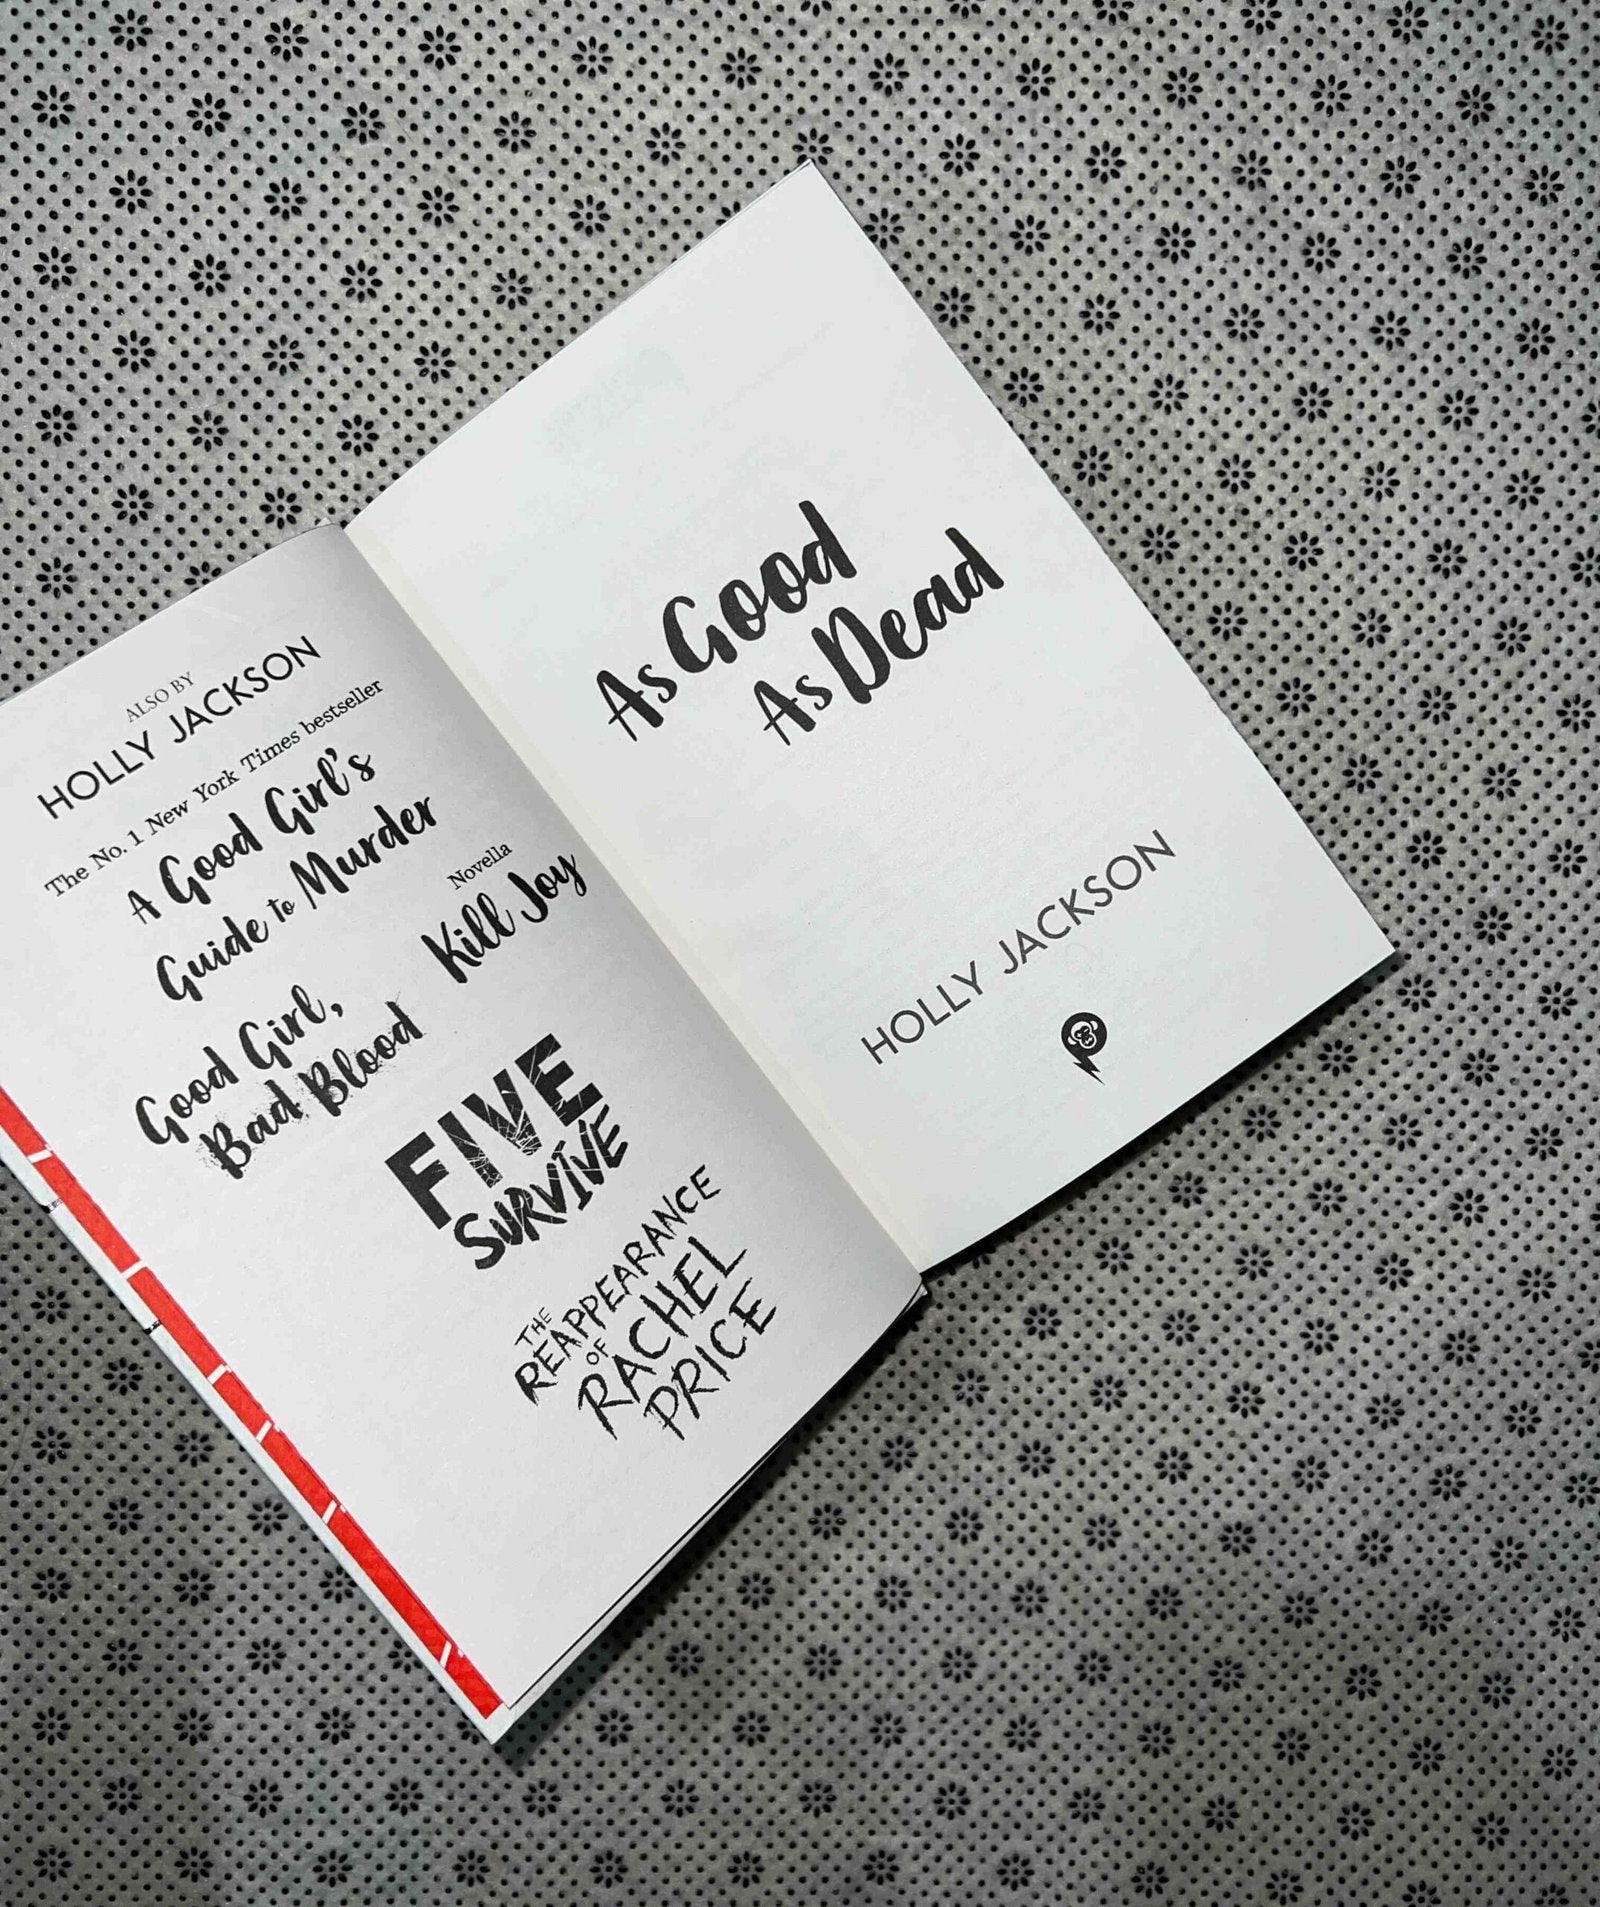 ALSO BY
HOLLY JACKSON
The No. 1 New York Times bestseller
A Good Girl's
Guide to Murder
Good Girl,
Bad Blood
Novella
Kill Joy
FIVE
SURVIVE
THE
REAPPEARANCE
OF
RACHEL
PRICE
As Good
As Dead
HOLLY JACKSON